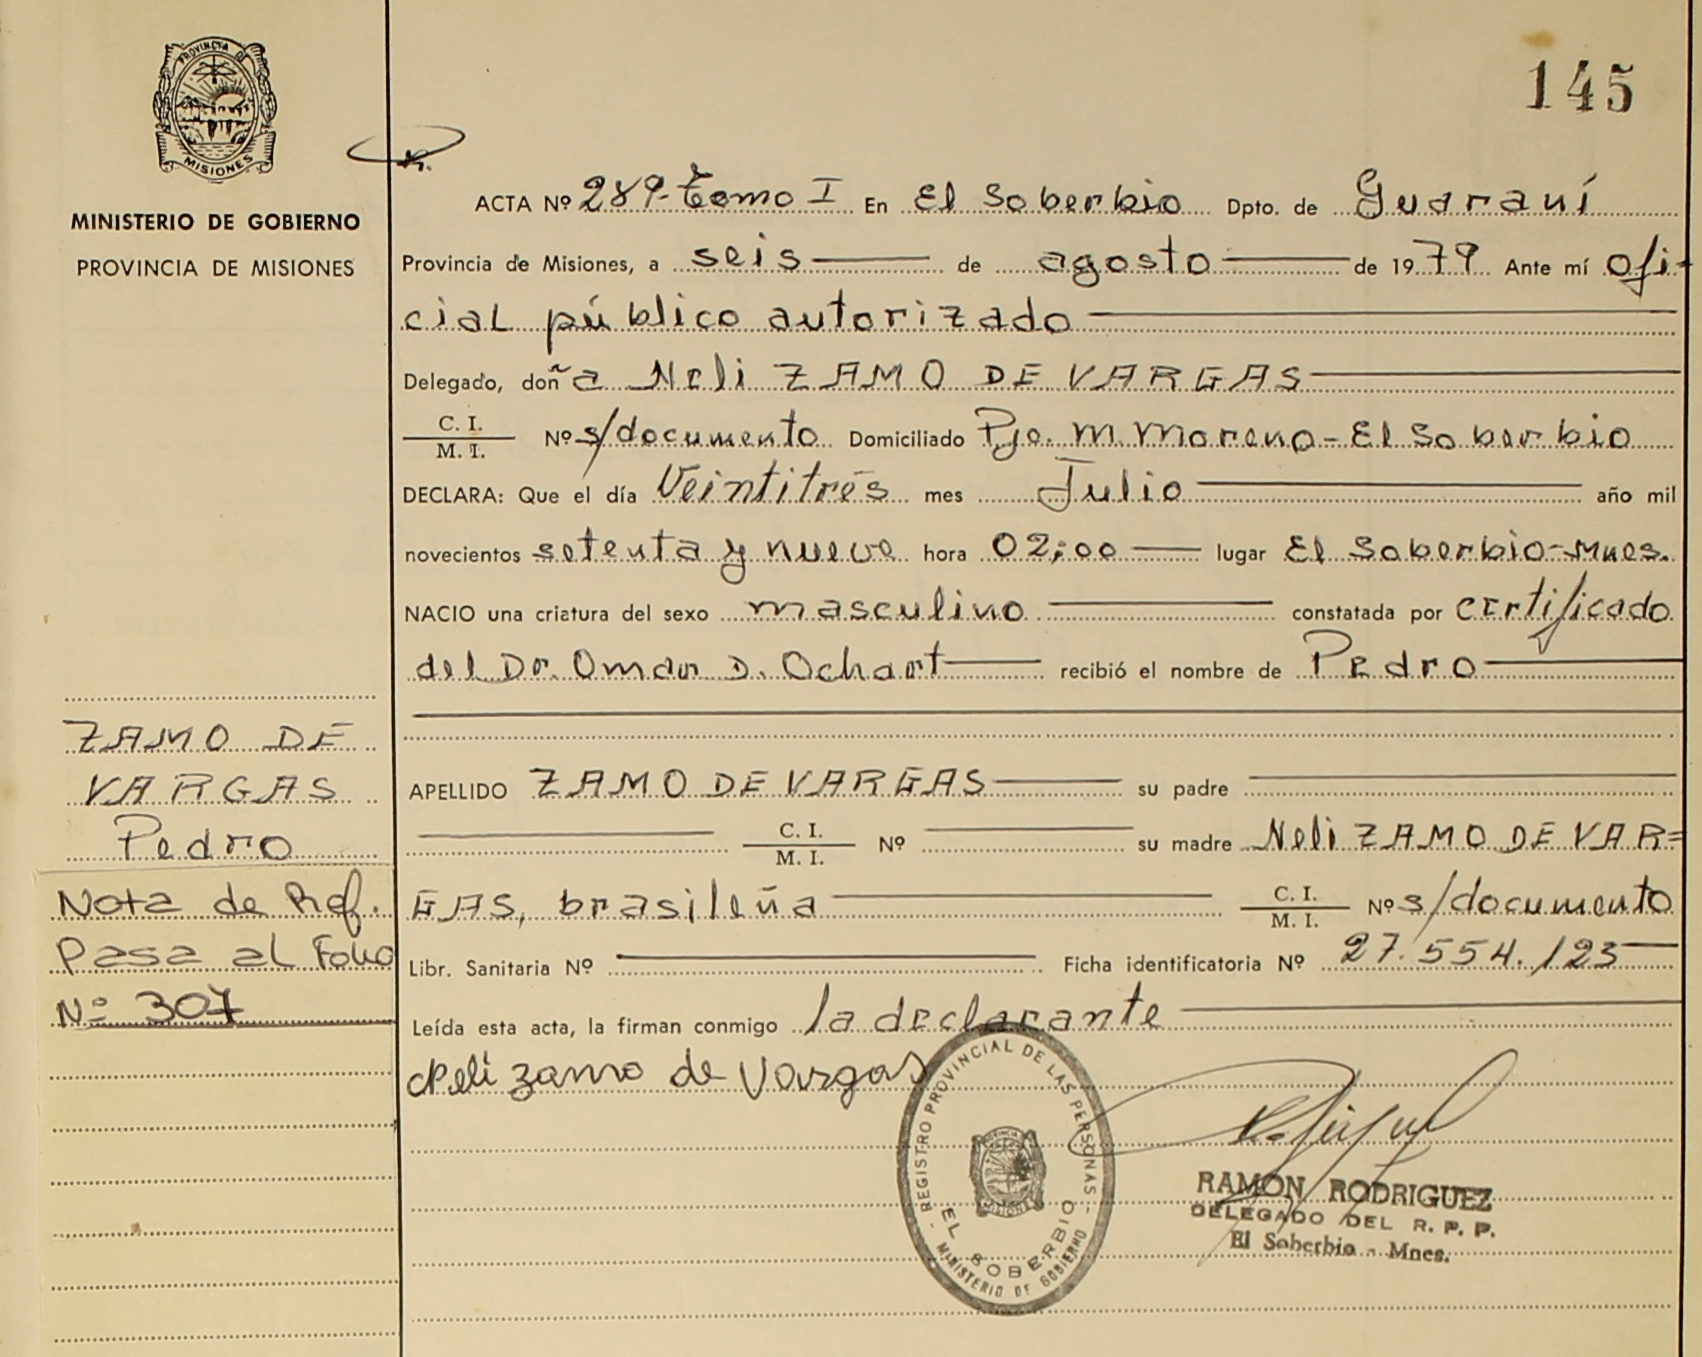 PROVINCIA DE
MISIONES
MINISTERIO DE GOBIERNO
PROVINCIA DE MISIONES
145
ACTA Nº 289-Tomo I En El Soberbio Dpto. de Guaraní
Provincia de Misiones, a seis de agosto de 1979 Ante mí ofi-
cial público autorizado
Delegado, doña Neli ZAMO DE VARGAS
C. I.
M. I.
Nº s/documento Domiciliado Pje. M. Moreno - El Soberbio
DECLARA: Que el día Veintitrés mes Julio año mil
novecientos setenta y nueve hora 02;00 lugar El Soberbio-Mnes.
NACIO una criatura del sexo masculino constatada por certificado
del Dr. Omar D. Ochart recibió el nombre de Pedro
APELLIDO ZAMO DE VARGAS su padre
C. I.
M. I.
Nº su madre Neli ZAMO DE VAR=
GAS, brasileña C. I.
M. I.
Nº s/documento
Libr. Sanitaria Nº Ficha identificatoria Nº 27.554.123
Leída esta acta, la firman conmigo la declarante
Neli zamo de Vargas
ZAMO DE
VARGAS
Pedro
Nota de Ref.
Pasa al Folio
Nº 307
REGISTRO PROVINCIAL DE LAS PERSONAS
EL SOBERBIO
MINISTERIO DE GOBIERNO
RAMON RODRIGUEZ
DELEGADO DEL R. P. P.
El Soberbio - Mnes.